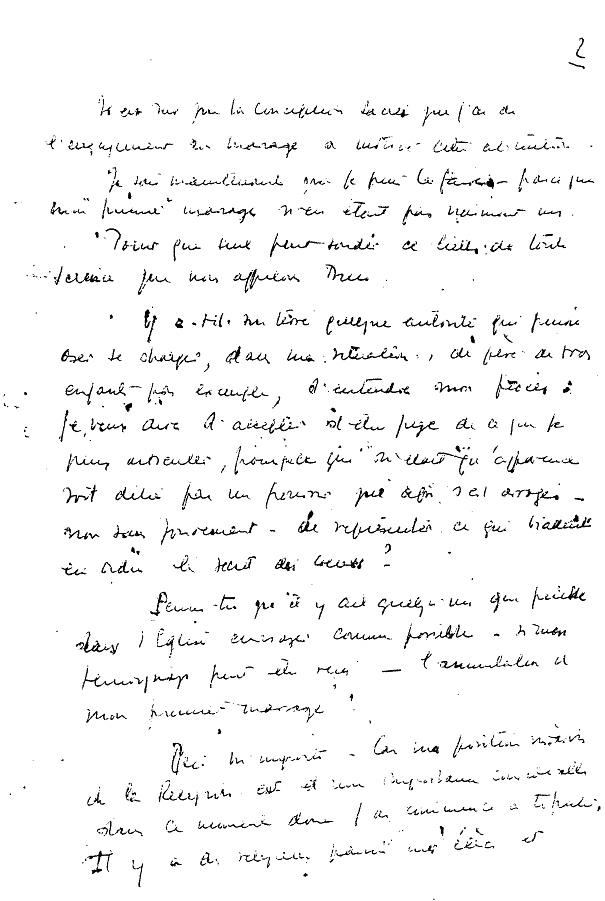 2
Je suis sûr que la conception sacrée que j'ai de
l'engagement du mariage a motivé cette
Je suis maintenant que je peux le faire - parce que
mon "premier" mariage n'en était pas vraiment un.
que seul peut sonder ce lieu de toute
que nous appelons Dieu.
Y a-t-il sur terre quelque autorité qui puisse
oser se charger, dans ma situation, de père de trois
enfants par exemple, d'entendre mon procès :
je veux dire d'accepter d'être juge de ce que je
peux articuler, pour que ce qui n'était qu'apparence
soit délié par un pouvoir qui s'est arrogé -
non sans fondement - de représenter ce qui
en ordre le secret des cœurs ?
Penses-tu qu'il y ait quelqu'un qui puisse
dans l'Eglise envisager comme possible - si mon
témoignage peut être reçu - l'annulation de
mon premier mariage ?
Ceci m'importe - Car ma position vis à vis
de la Religion est d'une importance considérable
dans ce moment dont j'ai commencé à te parler.
Il y a des religieux parmi mes élèves et